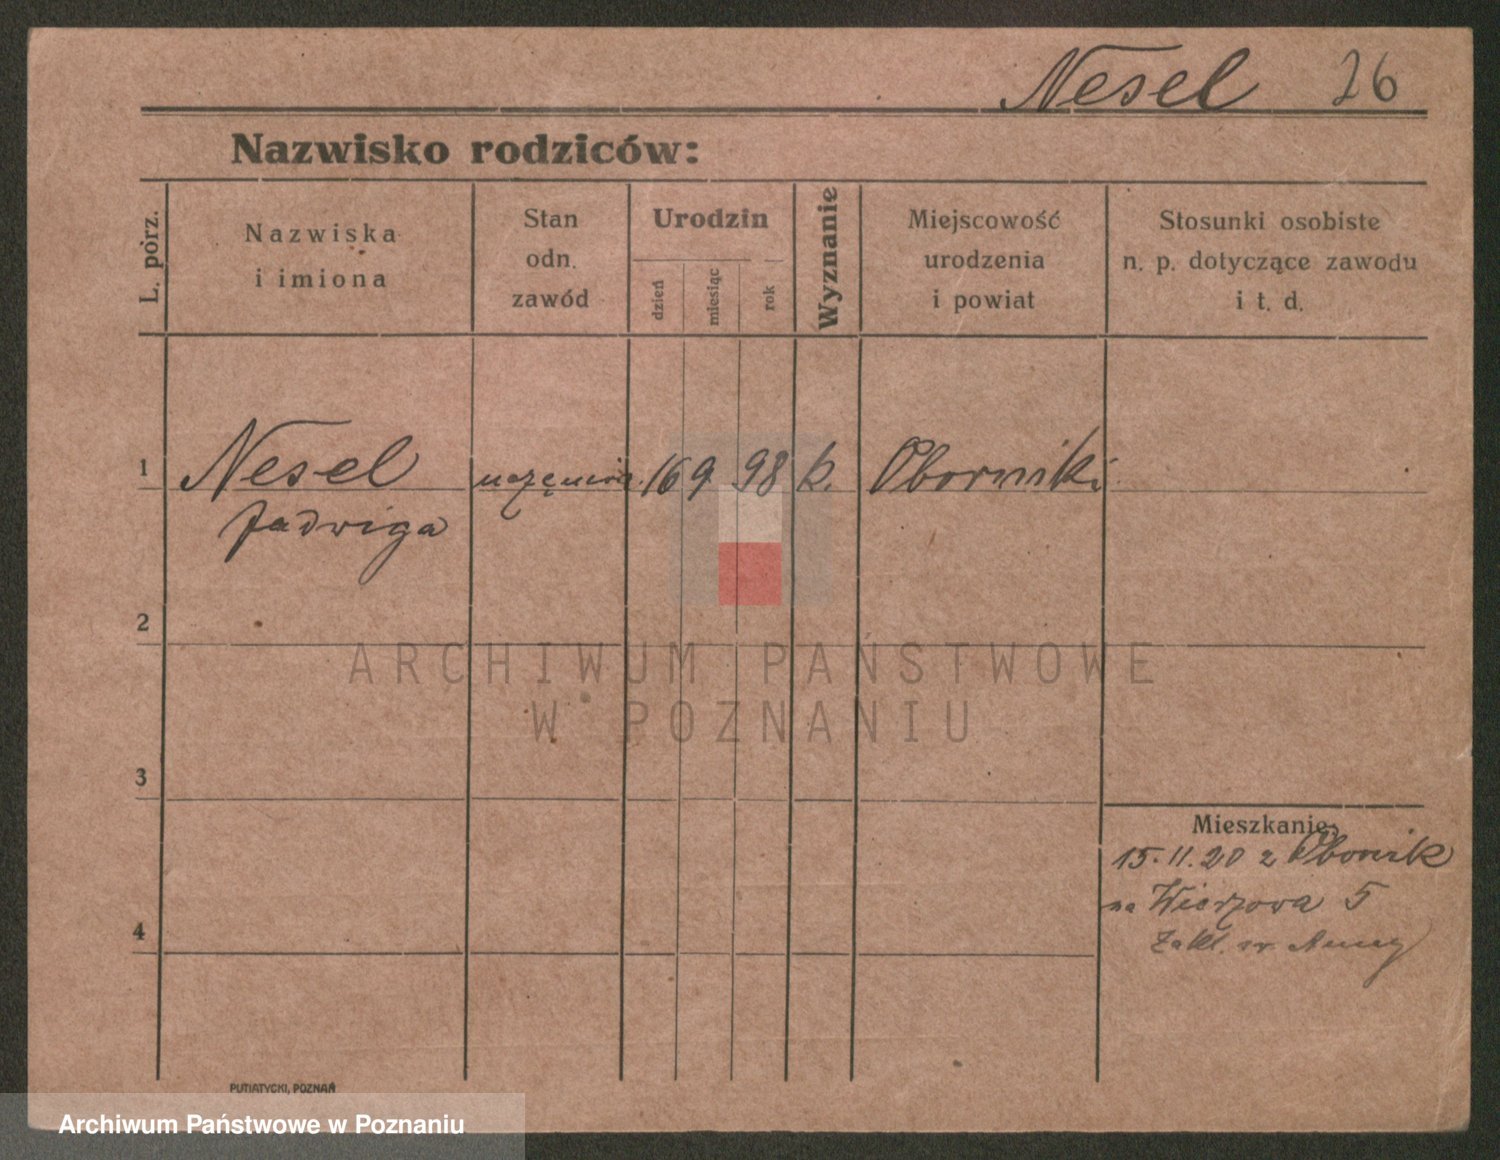 Nesel 26
Nazwisko rodziców:
L. pórz.
Nazwiska
i imiona
Stan
odn.
zawód
Urodzin
dzień
miesiąc
rok
Wyznanie
Miejscowość
urodzenia
i powiat
Stosunki osobiste
n. p. dotyczące zawodu
i t. d.
1 Nesel 16 9 98 k. Oborniki
Jadwiga
2
ARCHIWUM PAŃSTWOWE
W POZNANIU
3
Mieszkanie:
15.11.20 z Obornik
na Wierzowa 5
4
Zakł. św. Anny
PUTIATYCKI, POZNAŃ
Archiwum Państwowe w Poznaniu